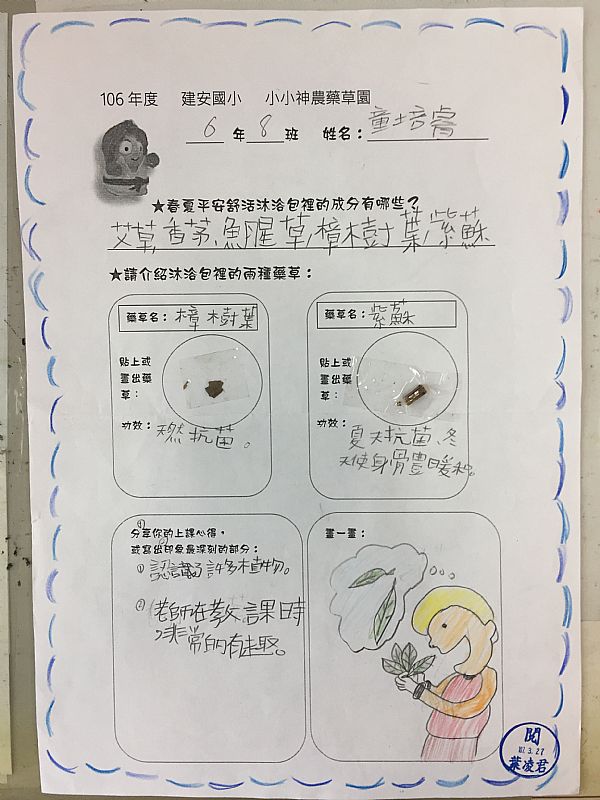 106 年度 建安國小 小小神農藥草園
6 年 8 班 姓名：童培睿
★春夏平安舒活沐浴包裡的成分有哪些？
艾草,香茅、魚腥草,樟樹葉,紫蘇
★請介紹沐浴包裡的兩種藥草：
藥草名：樟樹葉
貼上或畫出藥草：
功效：天然抗菌。
藥草名：紫蘇
貼上或畫出藥草：
功效：夏天抗菌、冬
天使身體暖和。
分享你的上課心得，
或寫出印象最深刻的部分：
①認識了許多植物。
②老師在教課時
非常的有趣。
畫一畫：
閱
107.3.27
葉凌君